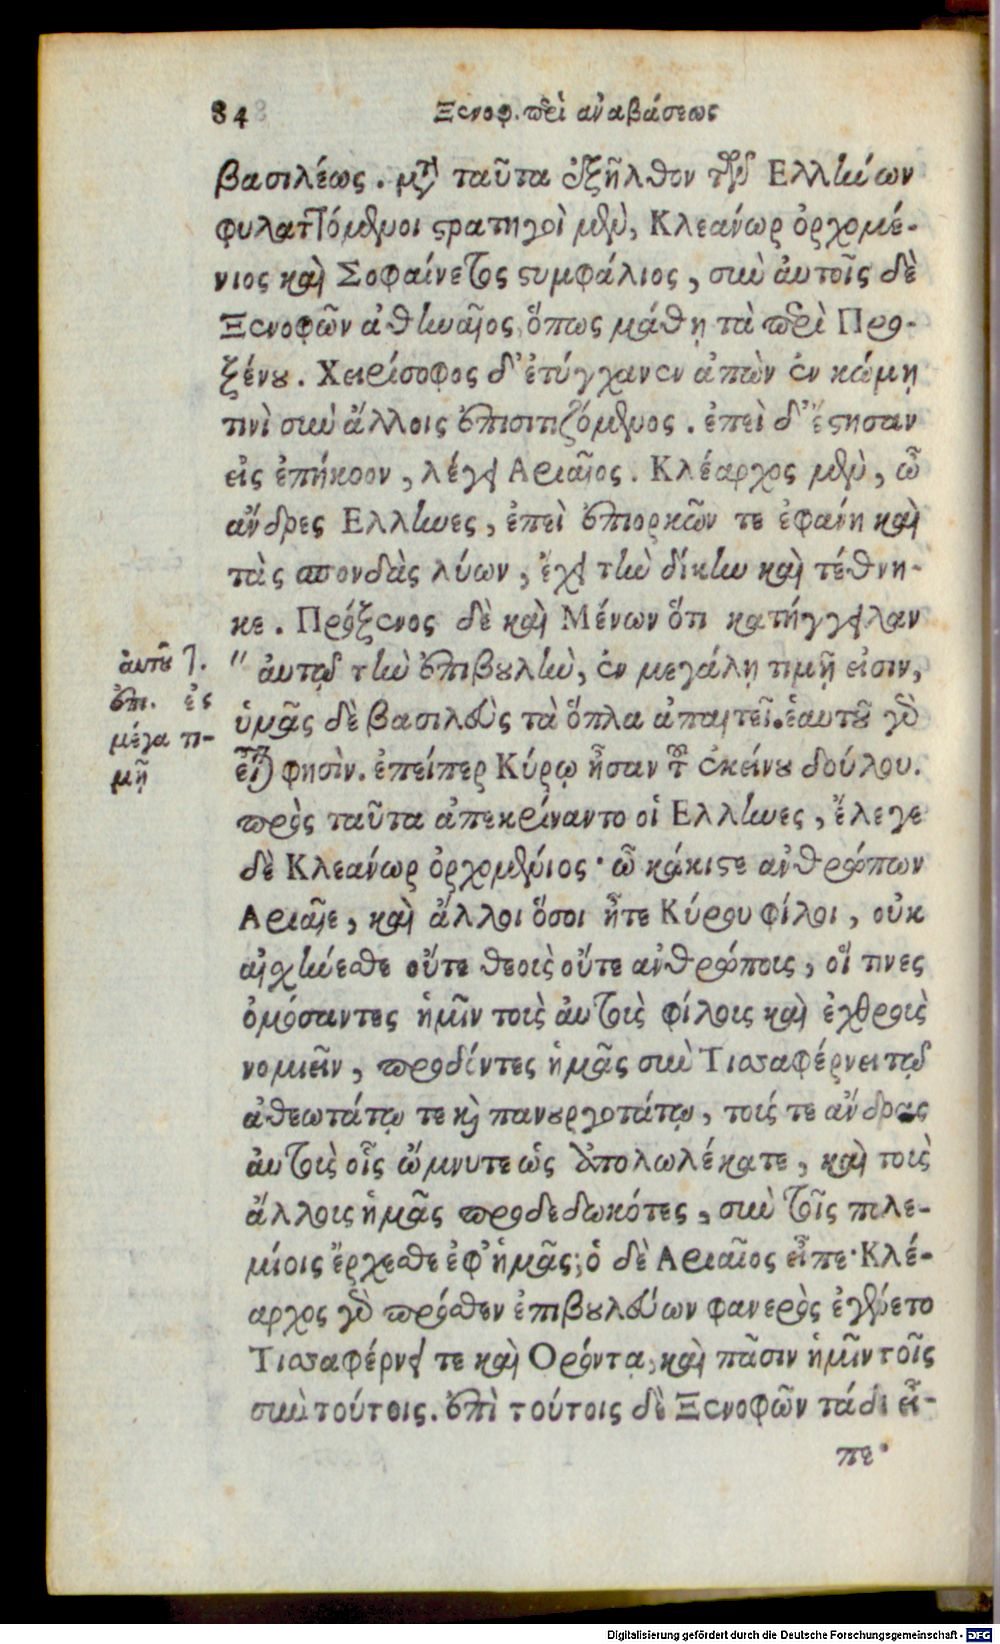 84 Ξενοφ. περὶ ἀναβάσεως
βασιλέως. μετὰ ταῦτα ἐξῆλθον τῶν Ελλήνων
φυλαττόμενοι στρατηγοὶ μὲν, Κλεάνωρ ὀρχομέ-
νιος καὶ Σοφαίνετος στυμφάλιος, σὺν ἀυτοῖς δὲ
Ξενοφῶν ἀθηναῖος, ὅπως μάθῃ τὰ περὶ Προ-
ξένου. Χειρίσοφος δ' ἐτύγχανεν ἀπὼν ἐν κώμῃ
τινὶ σὺν ἄλλοις ἐπισιτιζόμενος. ἐπεὶ δ' ἔστησαν
εἰς ἐπήκοον, λέγει Αριαῖος. Κλέαρχος μὲν, ὦ
ἄνδρες Ελληνες, ἐπεὶ ἐπιορκῶν τε ἐφάνη καὶ
τὰς σπονδὰς λύων, ἔχει τὴν δίκην καὶ τέθνη-
κε. Πρόξενος δὲ καὶ Μένων ὅτι κατήγγειλαν
" ἀυτῷ τὴν ἐπιβουλὴν, ἐν μεγάλῃ τιμῇ εἰσιν,
ὑμᾶς δὲ βασιλεὺς τὰ ὅπλα ἀπαιτεῖ. ἑαυτοῦ γὰρ
φησὶν. ἐπείπερ Κύρῳ ἦσαν τοῦ ἐκείνου δούλου.
πρὸς ταῦτα ἀπεκρίναντο οἱ Ελληνες, ἔλεγε
δὲ Κλεάνωρ ὀρχομένιος· ὦ κάκιστε ἀνθρώπων
Αριαῖε, καὶ ἄλλοι ὅσοι ἦτε Κύρου φίλοι, οὐκ
αἰσχύνεσθε οὔτε θεοὺς οὔτε ἀνθρώπους, οἵ τινες
ὀμόσαντες ἡμῖν τοὺς ἀυτοὺς φίλους καὶ ἐχθροὺς
νομιεῖν, προδόντες ἡμᾶς σὺν Τισσαφέρνει τῷ
ἀθεωτάτῳ τε καὶ πανουργοτάτῳ, τούς τε ἄνδρας
ἀυτοὺς οἷς ὤμνυτε ὡς ἀπολωλέκατε, καὶ τοὺς
ἄλλους ἡμᾶς προδεδωκότες, σὺν τοῖς πολε-
μίοις ἔρχεσθε ἐφ' ἡμᾶς; ὁ δὲ Αριαῖος εἶπε· Κλέ-
αρχος γὰρ πρόσθεν ἐπιβουλεύων φανερὸς ἐγένετο
Τισσαφέρνει τε καὶ Ορόντᾳ, καὶ πᾶσιν ἡμῖν τοῖς
σὺν τούτοις. ἐπὶ τούτοις δὲ Ξενοφῶν τάδε εἶ-
πε·
ἀυτοῦ
ἐπι. ἐς
μέγα τι-
μῇ